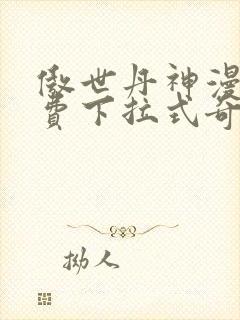 傲世丹神漫
费下拉式奇
拗人